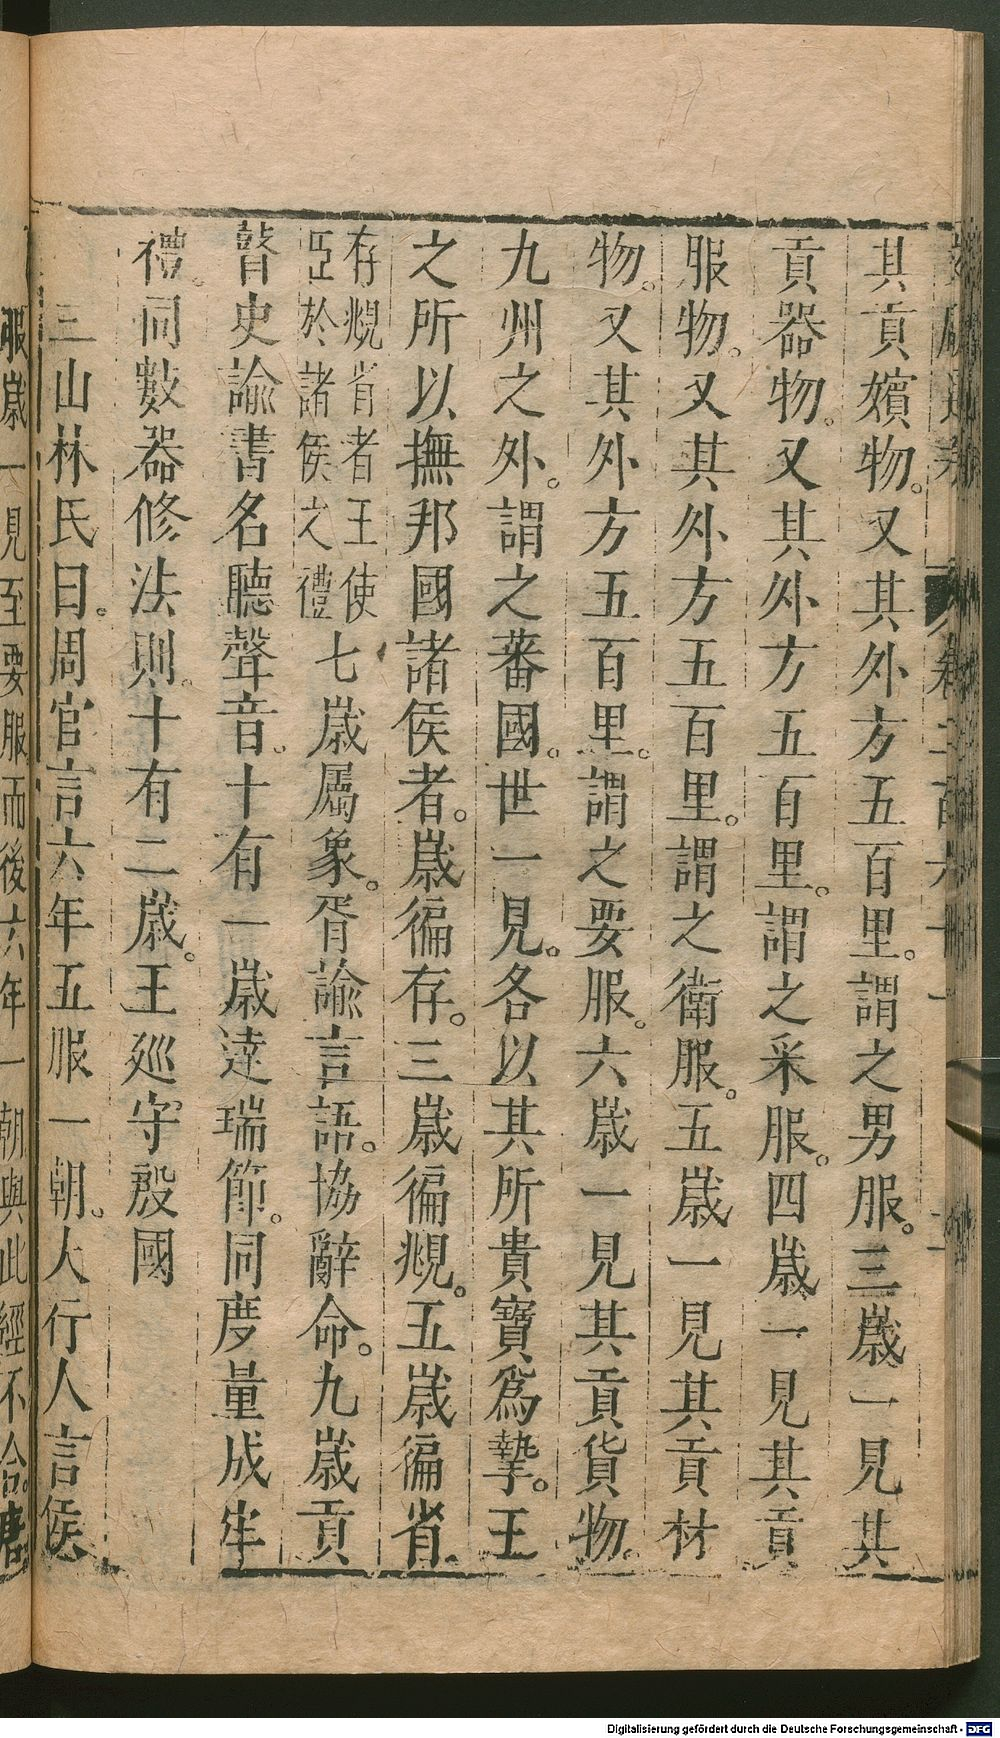 其貢嬪物。又其外方五百里。謂之男服。三歲一見其
貢器物。又其外方五百里。謂之采服。四歲一見其貢
服物。又其外方五百里。謂之衛服。五歲一見其貢材
物。又其外方五百里。謂之要服。六歲一見其貢貨物。
九州之外。謂之蕃國。世一見。各以其所貴寶爲摯。王
之所以撫邦國諸侯者。歲徧存。三歲徧覜。五歲徧省
存覜省者王使
臣於諸侯之禮
七歲屬象。胥諭言語。協辭命。九歲貢
瞽史諭書名聽聲音。十有一歲達瑞節。同度量成牢
禮。同數器修法則。十有二歲。王巡守殷國
三山林氏曰。周官言六年五服一朝。大行人言侯
服歲一見至要服而後六年一朝與此經不合。唐
Digitalisierung gefördert durch die Deutsche Forschungsgemeinschaft - DFG